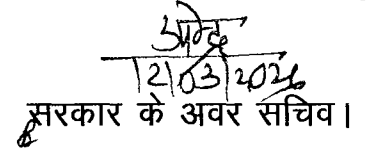 12/03/2026
सरकार के अवर सचिव।